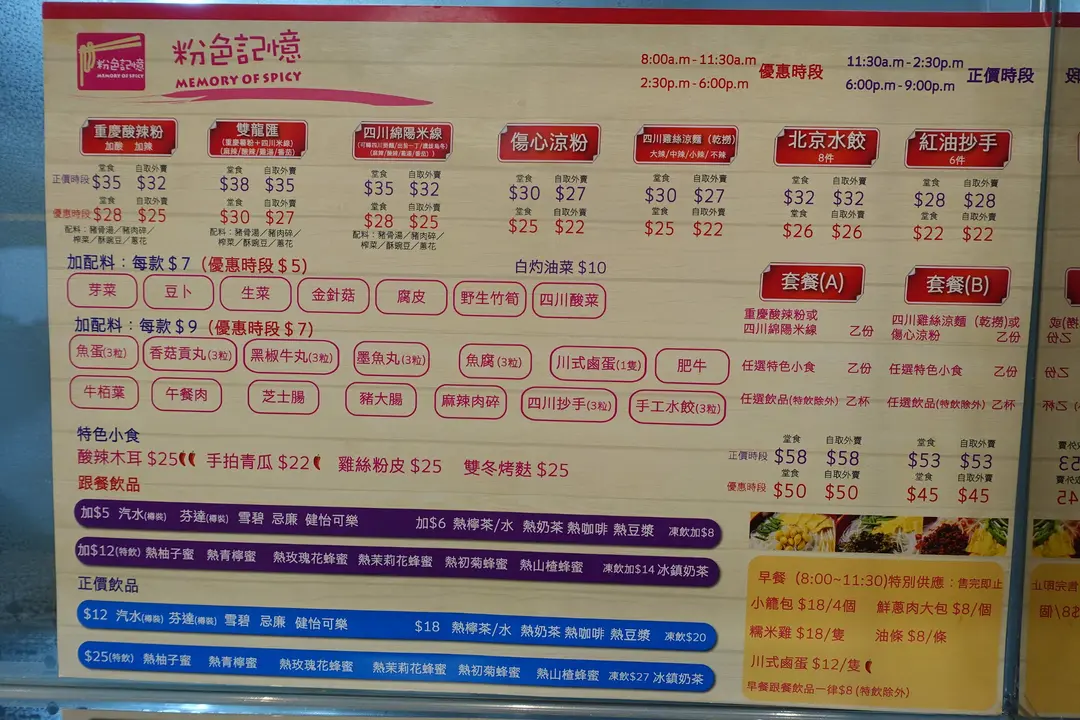 粉色記憶
MEMORY OF SPICY
粉色記憶
MEMORY OF SPICY
8:00a.m-11:30a.m
2:30p.m-6:00p.m
優惠時段
11:30a.m-2:30p.m
6:00p.m-9:00p.m
正價時段
重慶酸辣粉
加酸 加辣
堂食 自取外賣
正價時段 $35 $32
堂食 自取外賣
優惠時段 $28 $25
配料:豬骨湯/豬肉碎/
榨菜/酥豌豆/蔥花
雙龍匯
(重慶薯粉+四川米線)
(麻辣/酸辣/雞湯/蕃茄)
堂食 自取外賣
$38 $35
堂食 自取外賣
$30 $27
配料:豬骨湯/豬肉碎/
榨菜/酥豌豆/蔥花
四川綿陽米線
(麻辣/酸辣/雞湯/蕃茄)
堂食 自取外賣
$35 $32
堂食 自取外賣
$28 $25
配料:豬骨湯/豬肉碎/
榨菜/酥豌豆/蔥花
傷心涼粉
堂食 自取外賣
$30 $27
堂食 自取外賣
$25 $22
四川雞絲涼麵(乾撈)
大辣/中辣/小辣/不辣
堂食 自取外賣
$30 $27
堂食 自取外賣
$25 $22
北京水餃
8件
堂食 自取外賣
$32 $32
堂食 自取外賣
$26 $26
紅油抄手
6件
堂食 自取外賣
$28 $28
堂食 自取外賣
$22 $22
加配料:每款$7(優惠時段$5)
白灼油菜 $10
芽菜 豆卜 生菜 金針菇 腐皮 野生竹筍 四川酸菜
加配料:每款$9(優惠時段$7)
魚蛋(3粒) 香菇貢丸(3粒) 黑椒牛丸(3粒) 墨魚丸(3粒) 魚腐(3粒) 川式鹵蛋(1隻) 肥牛
牛栢葉 午餐肉 芝士腸 豬大腸 麻辣肉碎 四川抄手(3粒) 手工水餃(3粒)
特色小食
酸辣木耳 $25 手拍青瓜 $22 雞絲粉皮 $25 雙冬烤麩 $25
跟餐飲品
加$5 汽水(樽裝) 芬達(樽裝) 雪碧 忌廉 健怡可樂 加$6 熱檸茶/水 熱奶茶 熱咖啡 熱豆漿 凍飲加$8
加$12(特飲) 熱柚子蜜 熱青檸蜜 熱玫瑰花蜂蜜 熱茉莉花蜂蜜 熱初菊蜂蜜 熱山楂蜂蜜 凍飲加$14 冰鎮奶茶
正價飲品
$12 汽水(樽裝) 芬達(樽裝) 雪碧 忌廉 健怡可樂 $18 熱檸茶/水 熱奶茶 熱咖啡 熱豆漿 凍飲$20
$25(特飲) 熱柚子蜜 熱青檸蜜 熱玫瑰花蜂蜜 熱茉莉花蜂蜜 熱初菊蜂蜜 熱山楂蜂蜜 凍飲$27 冰鎮奶茶
套餐(A)
重慶酸辣粉或
四川綿陽米線 乙份
任選特色小食 乙份
任選飲品(特飲除外) 乙杯
堂食 自取外賣
正價時段 $58 $58
堂食 自取外賣
優惠時段 $50 $50
套餐(B)
四川雞絲涼麵(乾撈)或
傷心涼粉 乙份
任選特色小食 乙份
任選飲品(特飲除外) 乙杯
堂食 自取外賣
$53 $53
堂食 自取外賣
$45 $45
早餐(8:00~11:30)特別供應:售完即止
小籠包 $18/4個 鮮蔥肉大包 $8/個
糯米雞 $18/隻 油條 $8/條
川式鹵蛋 $12/隻
早餐跟餐飲品一律$8(特飲除外)